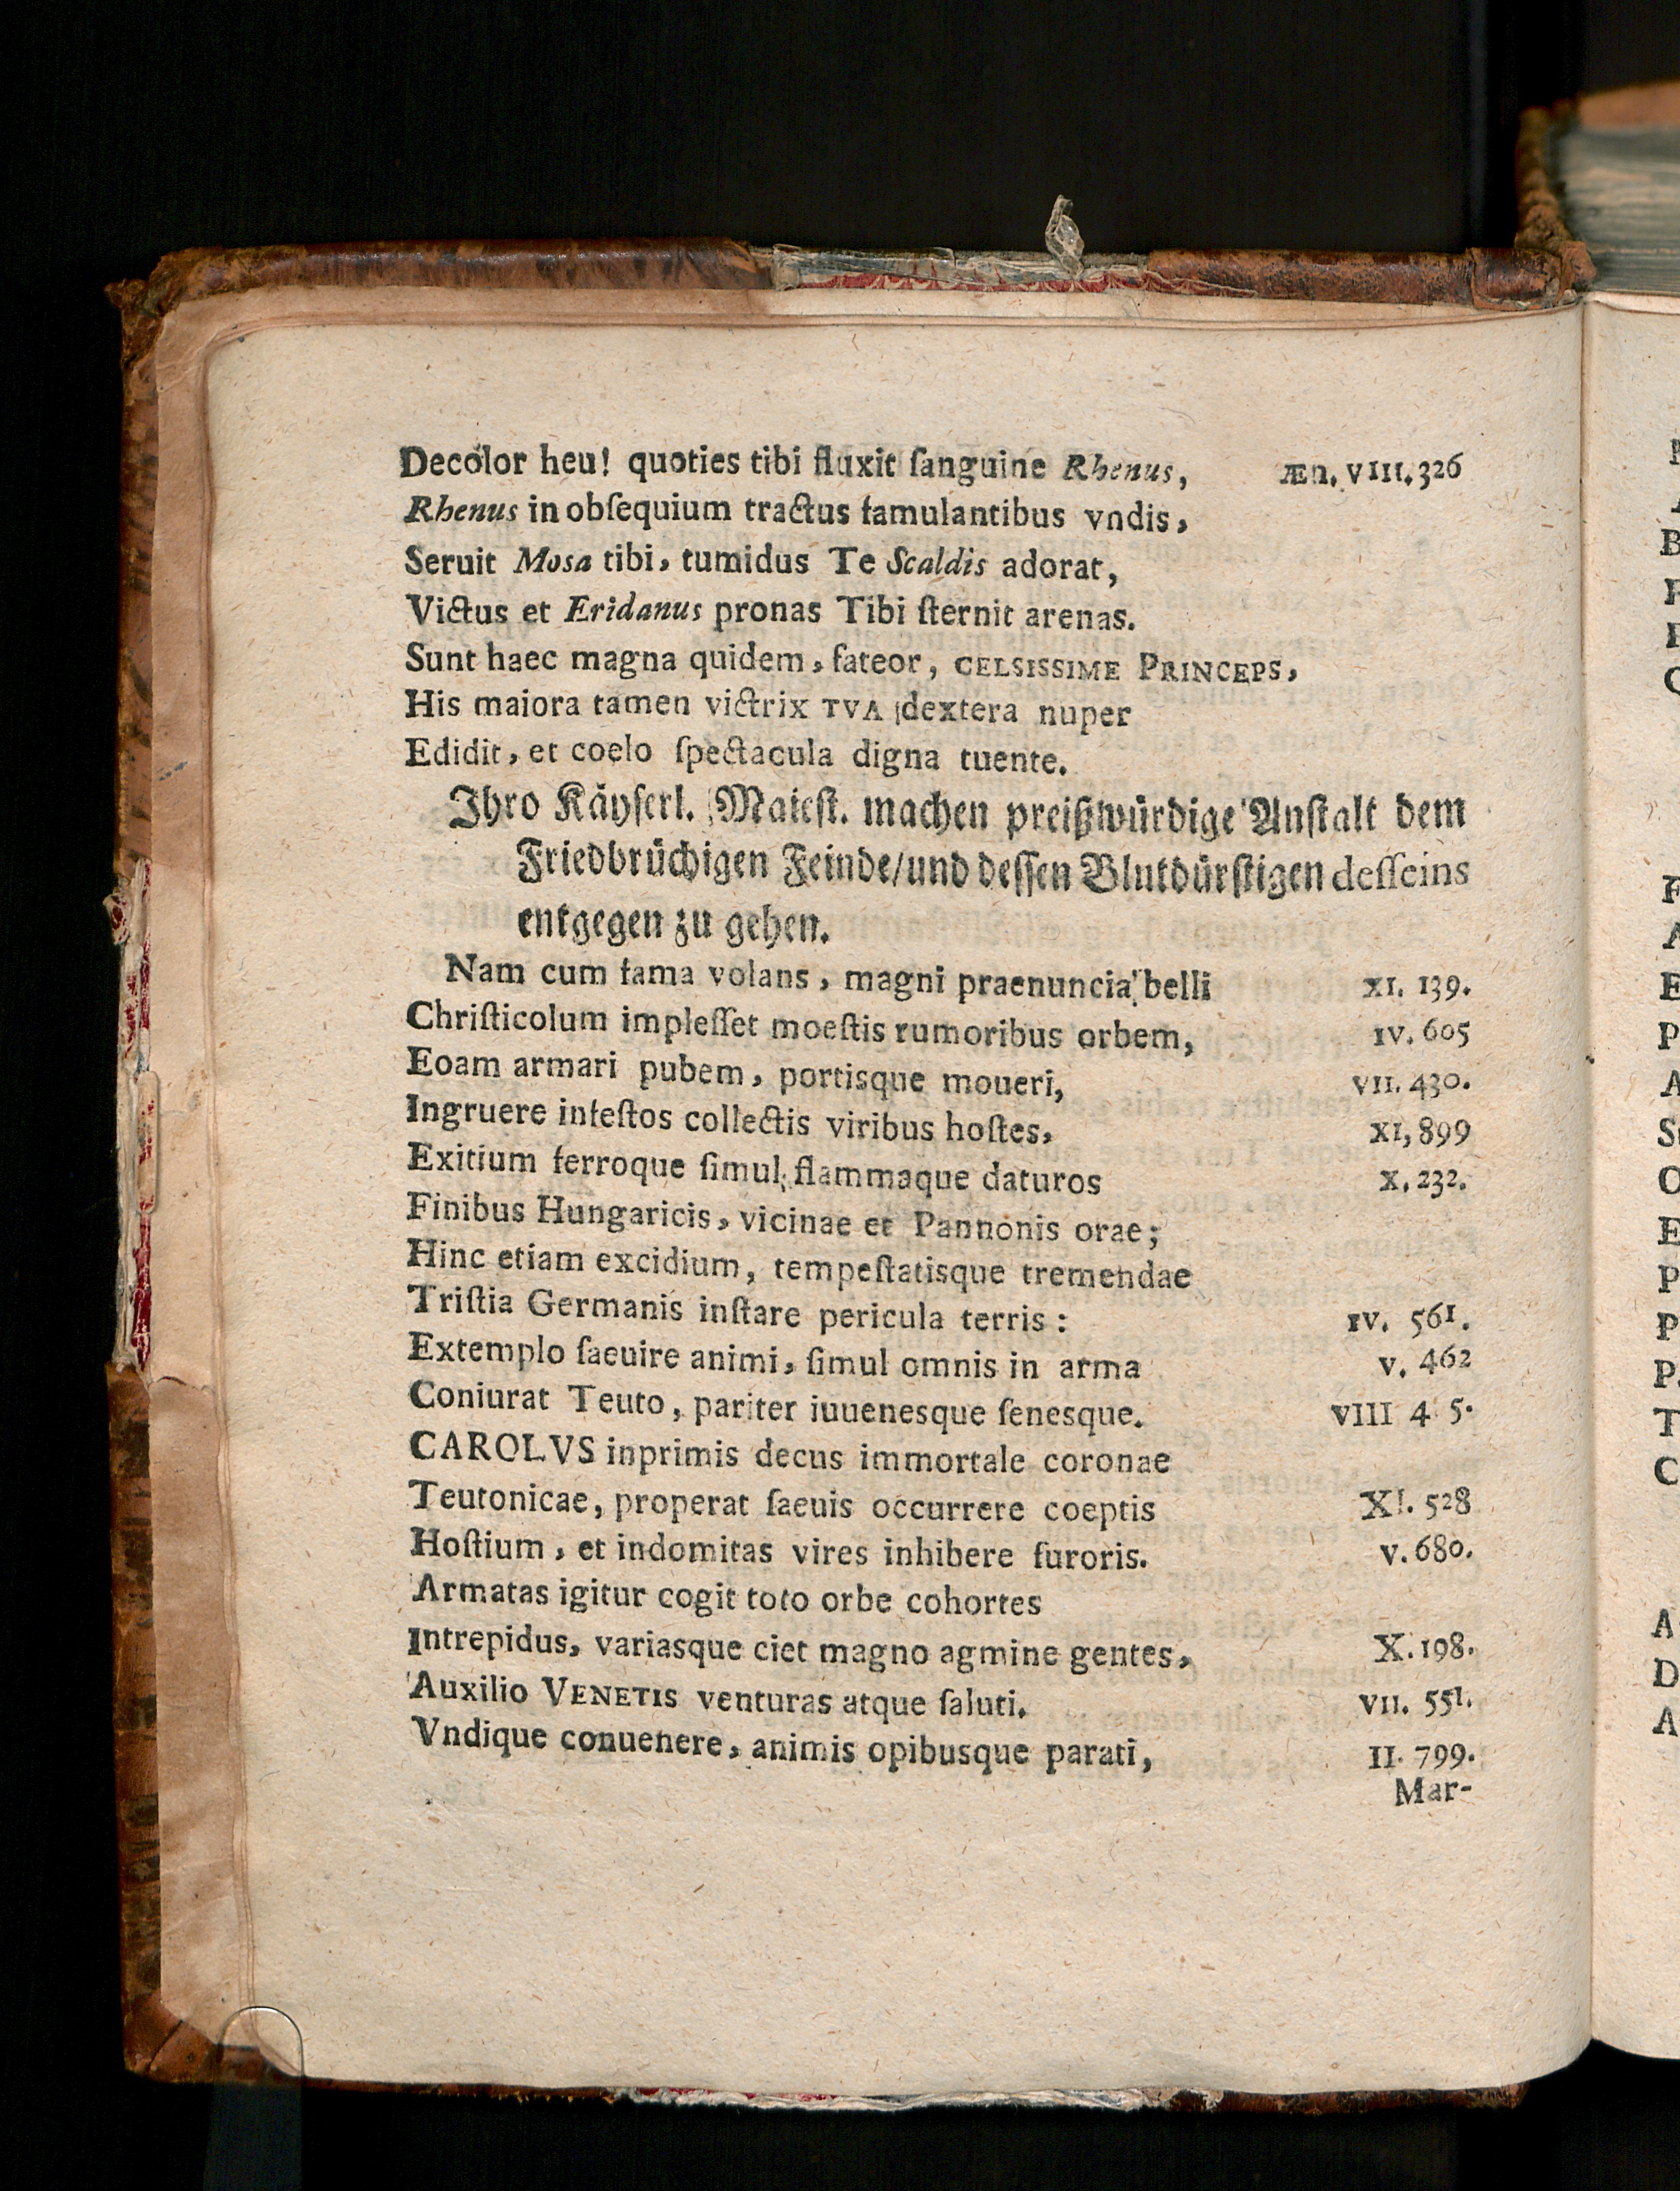 Decolor heu! quoties tibi fluxit ſanguine Rhenus, Æn. VIII. 326
Rhenus in obſequium tractus famulantibus vndis,
Seruit Mosa tibi, tumidus Te Scaldis adorat,
Victus et Eridanus pronas Tibi ſternit arenas.
Sunt haec magna quidem, fateor, CELSISSIME PRINCEPS,
His maiora tamen victrix TVA dextera nuper
Edidit, et coelo ſpectacula digna tuente.
Ihro Käyſerl. Maieſt. machen preißwürdige Anſtalt dem
Friedbrüchigen Feinde/und deſſen Blutdürſtigen deſſeins
entgegen zu gehen.
Nam cum fama volans, magni praenuncia belli XI. 139.
Chriſticolum impleſſet moeſtis rumoribus orbem, IV. 605
Eoam armari pubem, portisque moueri, VII. 430.
Ingruere infeſtos collectis viribus hoſtes, XI, 899
Exitium ferroque ſimul flammaque daturos X. 232.
Finibus Hungaricis, vicinae et Pannonis orae;
Hinc etiam excidium, tempeſtatisque tremendae
Triſtia Germanis inſtare pericula terris: IV. 561.
Extemplo ſaeuire animi, ſimul omnis in arma V. 462
Coniurat Teuto, pariter iuuenesque ſenesque. VIII 4 5.
CAROLVS inprimis decus immortale coronae
Teutonicae, properat ſaeuis occurrere coeptis XI. 528
Hoſtium, et indomitas vires inhibere furoris. V. 680.
Armatas igitur cogit toto orbe cohortes
Intrepidus, variasque ciet magno agmine gentes, X. 198.
Auxilio VENETIS venturas atque ſaluti. VII. 551.
Vndique conuenere, animis opibusque parati, II. 799.
Mar-